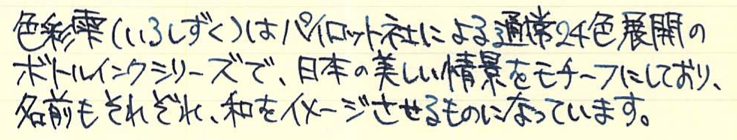 色彩雫(いろしずく)はパイロット社による通常24色展開の
ボトルインクシリーズで、日本の美しい情景をモチーフにしており、
名前もそれぞれ、和をイメージさせるものになっています。